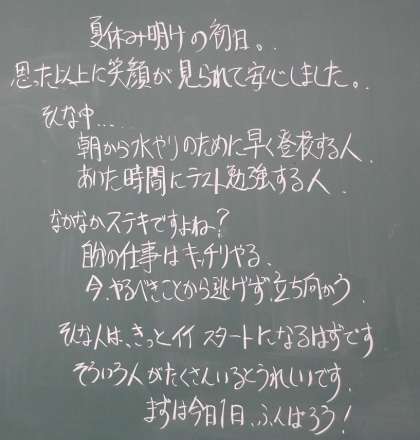 夏休み明けの初日。
思った以上に笑顔が見られて安心しました。
そんな中……
朝から水やりのために早く登校する人、
あいた時間にテスト勉強する人、
なかなかステキですよね？
自分の仕事はキッチリやる、
今、やるべきことから逃げず立ち向かう、
そんな人は、きっとイイスタートになるはずです
そういう人がたくさんいるとうれしいです。
まずは今日1日、ふんばろう！